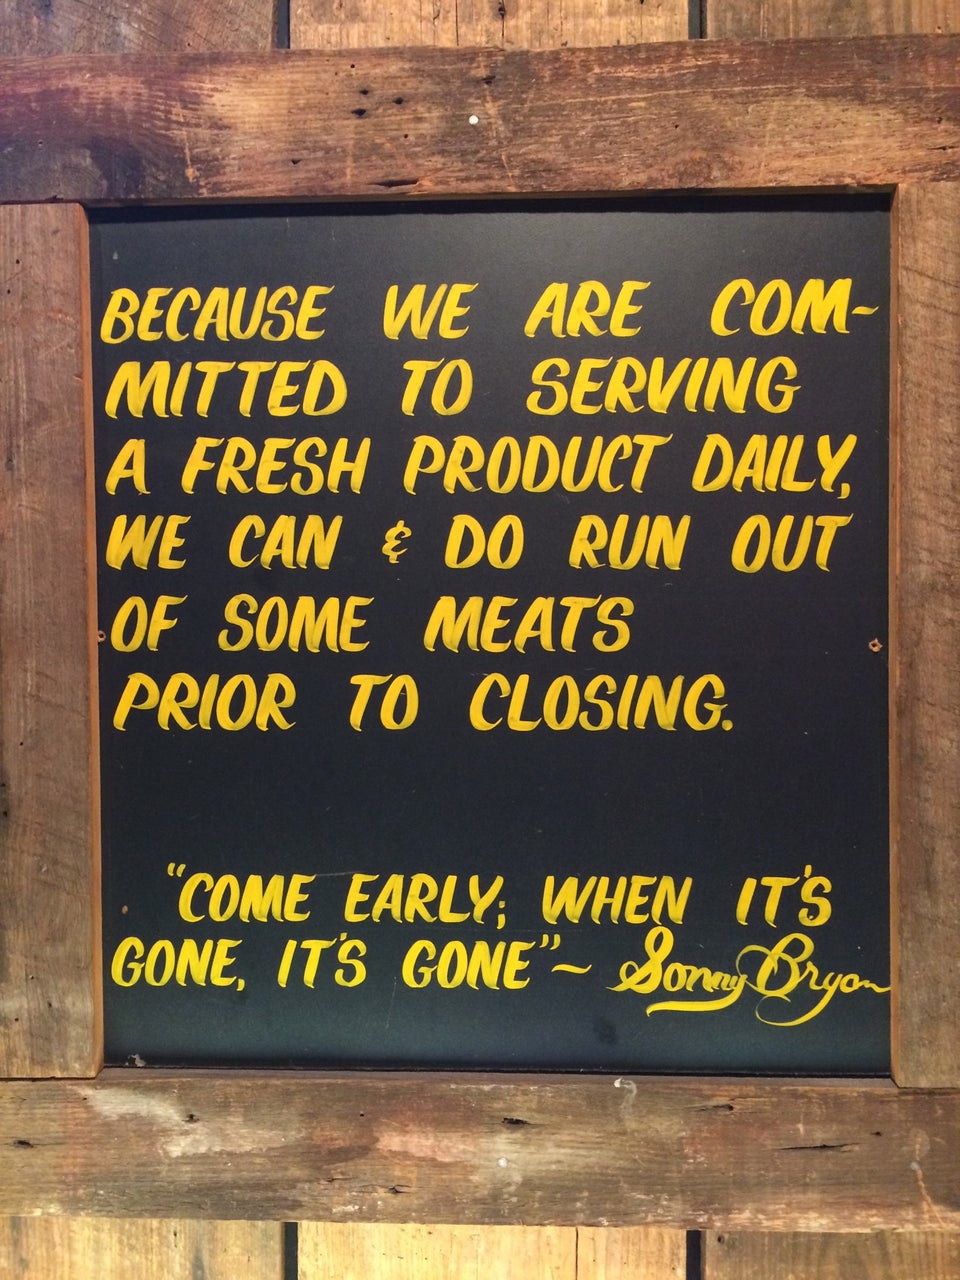 BECAUSE WE ARE COM-
MITTED TO SERVING
A FRESH PRODUCT DAILY,
WE CAN & DO RUN OUT
OF SOME MEATS
PRIOR TO CLOSING.
"COME EARLY; WHEN IT'S
GONE, IT'S GONE" ~ Sonny Bryan